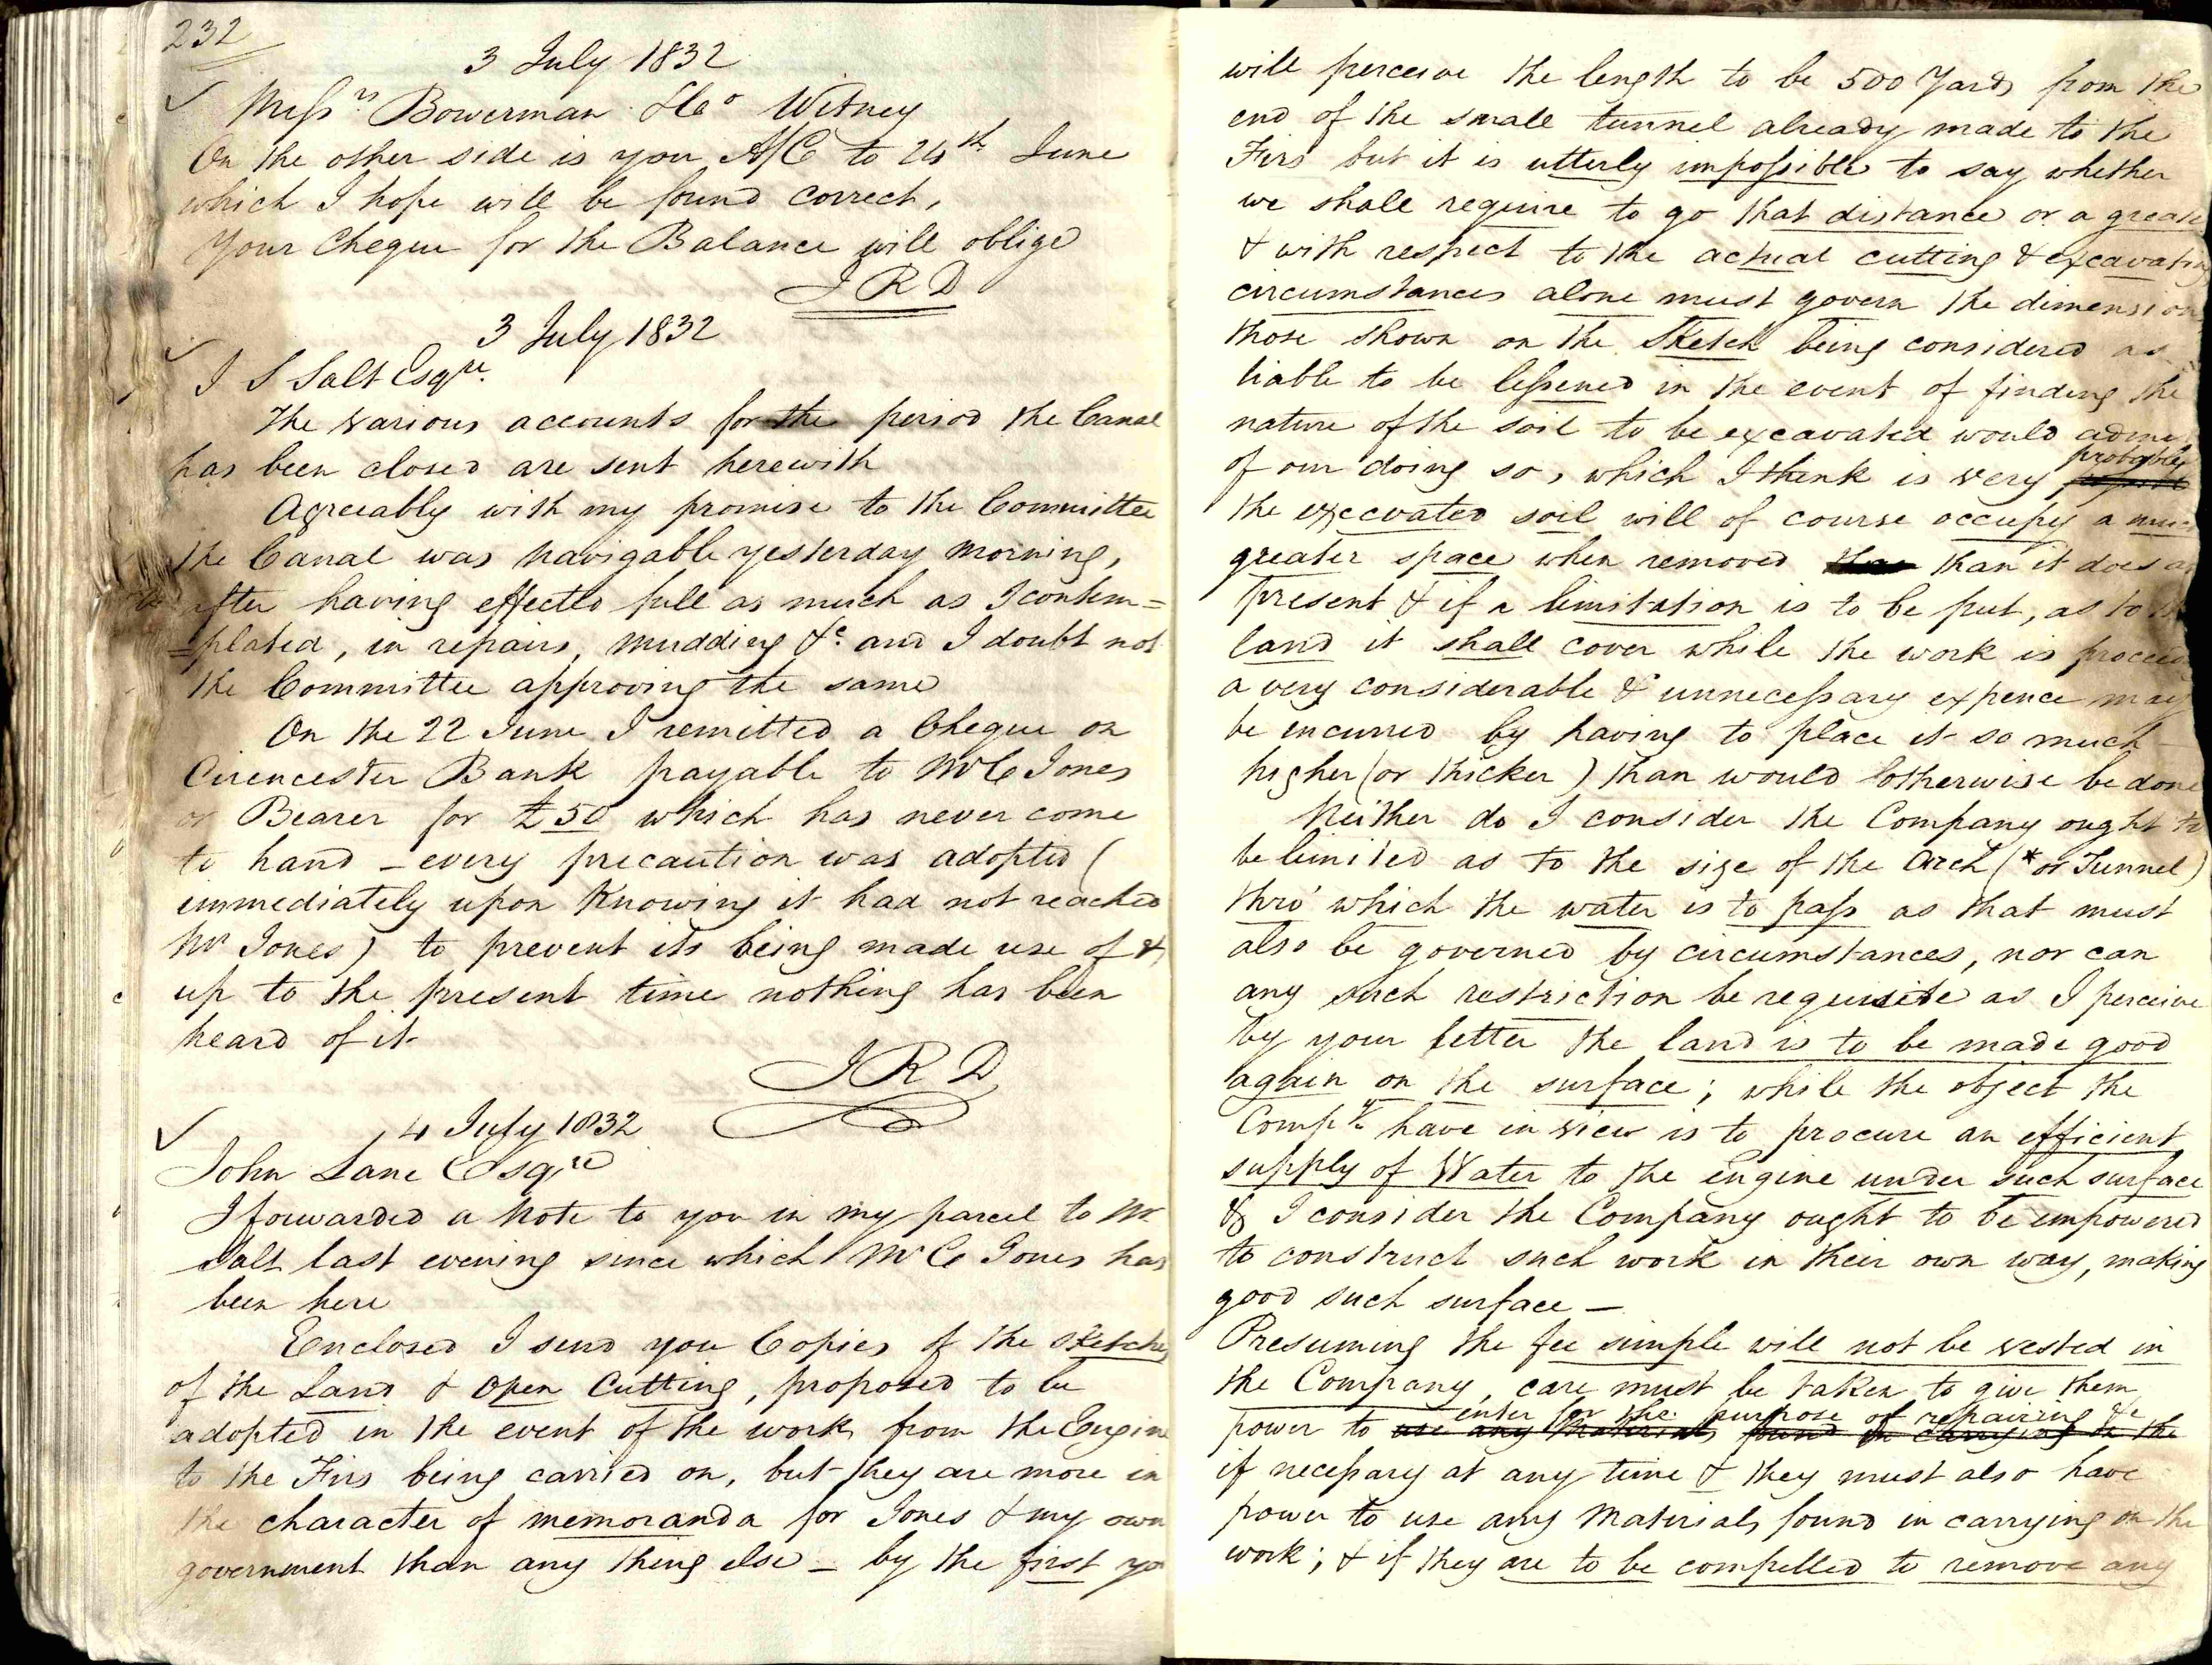 232
3 July 1832
Messrs Bowerman & Co Witney
On the other side is you A/C to 24th June
which I hope will be found correct,
Your Cheque for the Balance will oblige
J R D
3 July 1832
J S Salt Esqre.
The various accounts for the period the Canal
has been closed are sent herewith
Agreeably with my promise to the Committee
the Canal was navigable yesterday morning,
after having effected full as much as I contem=
=plated, in repairs, mudding &c and I doubt not
the Committee approving the same
On the 22 June I remitted a Cheque on
Cirencester Bank payable to Mr C Jones
or Bearer for £50 which has never come
to hand – every precaution was adopted (
immediately upon Knowing it had not reached
Mr Jones) to prevent its being made use of &
up to the present time nothing has been
heard of it
J R D
4 July 1832
John Lane Esqre
I forwarded a Note to you in my parcel to Mr
Salt last evening since which Mr C Jones has
been here
Enclosed I send you Copies of the sketches
of the Land & Open Cutting, proposed to be
adopted in the event of the work from the Engine
to the Firs being carried on, but they are more in
the character of memoranda for Jones & my own
government than any thing else – by the first you
will perceive the length to be 500 Yards from the
end of the small tunnel already made to the
Firs but it is utterly impossible to say whether
we shall require to go that distance or a greater
& with respect to the actual cutting & excavating
circumstances alone must govern the dimensions
those shown on the Sketch being considered as
liable to be lessened in the event of finding the
nature of the soil to be excavated would admit
of our doing so, which I think is very probable
the excavated soil will of course occupy a much
greater space when removed than it does at
present & if a limitation is to be put, as to the
land it shall cover while the work is proceeding
a very considerable & unnecessary expence may
be incurred by having to place it so much
higher (or thicker) than would otherwise be done
Neither do I consider the Company ought to
be limited as to the size of the Arch (* or Tunnel)
thro' which the water is to pass as that must
also be governed by circumstances, nor can
any such restriction be requisite as I perceive
by your letter the land is to be made good
again on the surface; while the object the
Compy have in view is to procure an efficient
supply of Water to the engine under such surface
& I consider the Company ought to be empowered
to construct such work in their own way, making
good such surface –
Presuming the fee simple will not be vested in
the Company, care must be taken to give them
enter for the purpose of repairing &c
power to use any Materials found in carrying on the
if necessary at any time & they must also have
power to use any Materials found in carrying on the
work; & if they are to be compelled to remove any